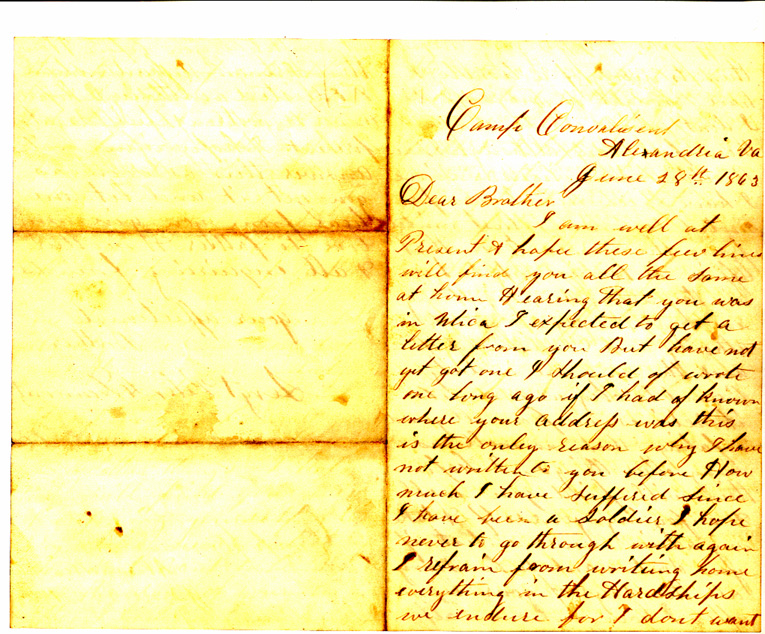 Camp Convalisent
Alexandria Va
June 28th 1863
Dear Brother
I am well at
Present & hope these few lines
will find you all the same
at home Hearing that you was
in Utica I expected to get a
letter from you But have not
yet got one I should of wrote
one long ago if I had of known
where your address was this
is the only reason why I have
not written to you before How
much I have suffered since
I have been a Soldier I hope
never to go through with again
I refrain from writing home
everything in the Hardships
we endure for I dont want